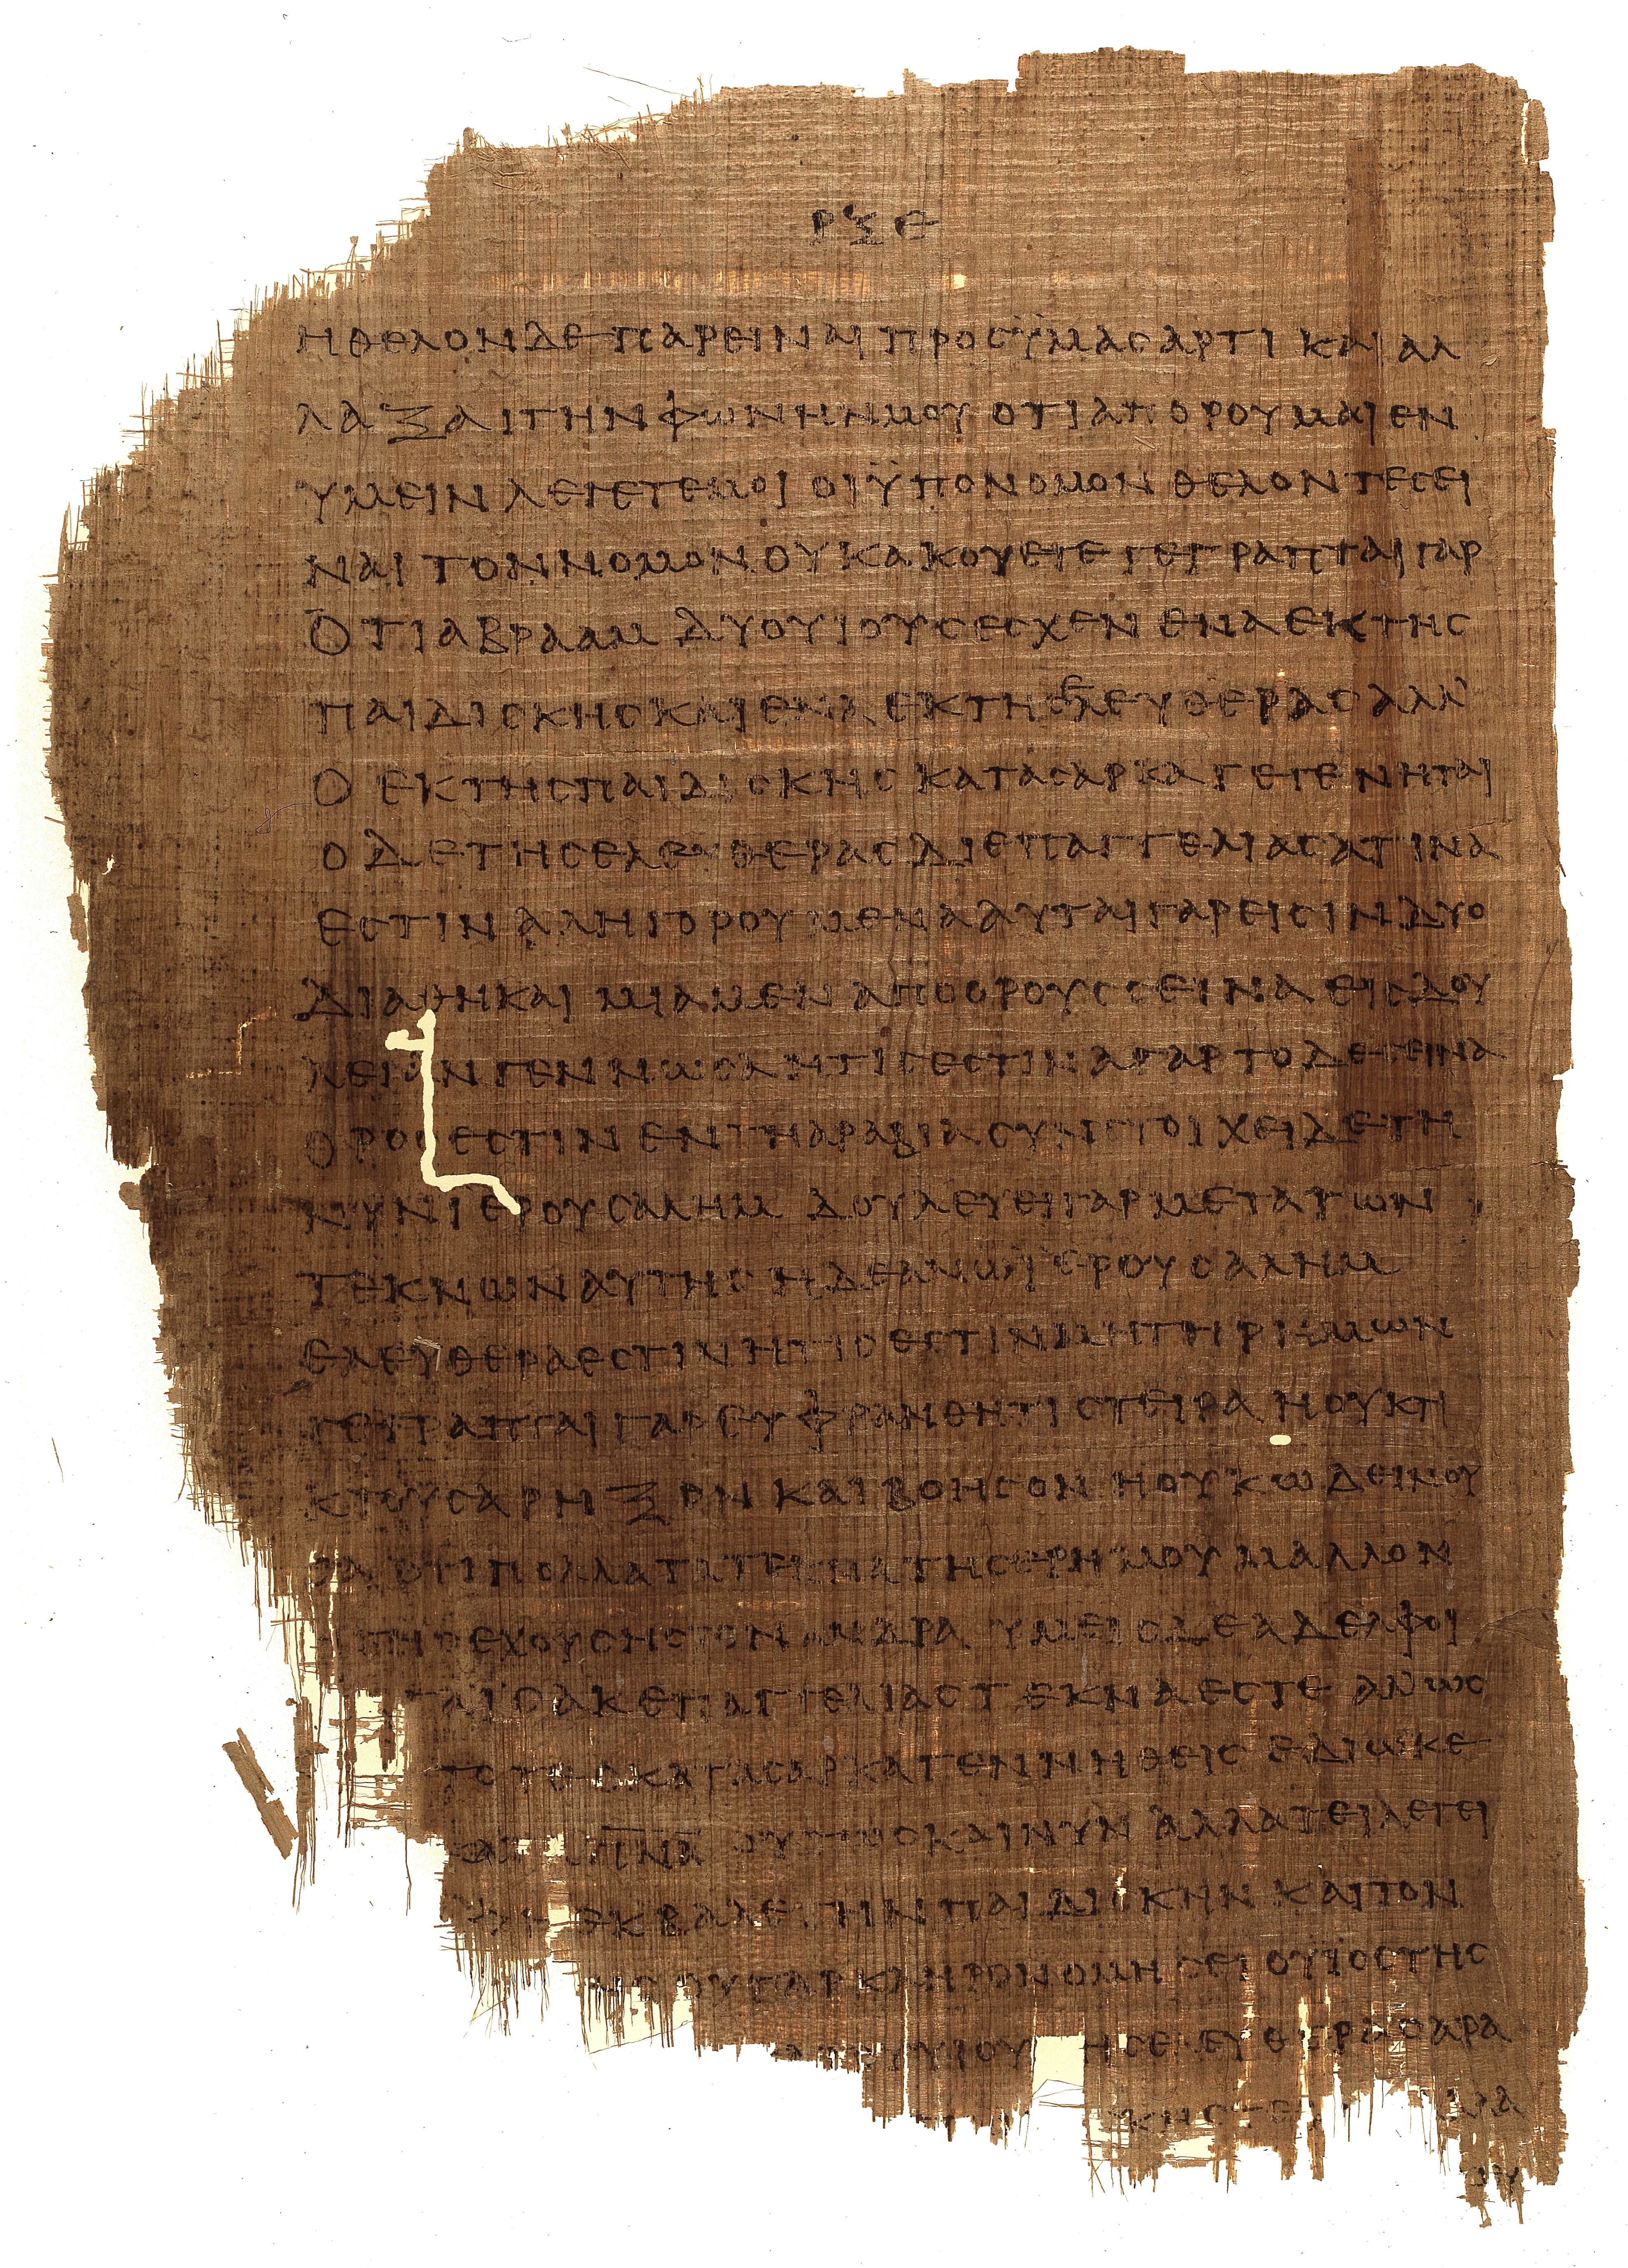 ΡΞΕ
ΗΘΕΛΟΝΔΕΠΑΡΕΙΝΑΙΠΡΟΣΫΜΑΣΑΡΤΙ ΚΑΙ ΑΛ
ΛΑΞΑΙΤΗΝΦΩΝΗΝΜΟΥ ΟΤΙΑΠΟΡΟΥΜΑΙΕΝ
ΥΜΕΙΝ ΛΕΓΕΤΕΜΟΙ ΟΙΫΠΟΝΟΜΟΝ ΘΕΛΟΝΤΕΣΕΙ
ΝΑΙ ΤΟΝΝΟΜΟΝΟΥΚΑΚΟΥΕΤΕ ΓΕΓΡΑΠΤΑΙΓΑΡ
ΟΤΙΑΒΡΑΑΜ ΔΥΟΥΙΟΥΣΕΣΧΕΝ ΕΝΑΕΚΤΗΣ
ΠΑΙΔΙΣΚΗΣΚΑΙΕΝΑΕΚΤΗΣΕΛΕΥΘΕΡΑΣΑΛΛ
Ο ΕΚΤΗΣΠΑΙΔΙΣΚΗΣ ΚΑΤΑΣΑΡΚΑΓΕΓΕΝΗΤΑΙ
ΟΔΕΤΗΣΕΛΕΥΘΕΡΑΣΔΙΕΠΑΓΓΕΛΙΑΣΑΤΙΝΑ
ΕΣΤΙΝ ΑΛΛΗΓΟΡΟΥΜΕΝΑΑΥΤΑΙΓΑΡΕΙΣΙΝΔΥΟ
ΔΙΑΘΗΚΑΙ ΜΙΑΜΕΝ ΑΠΟΟΡΟΥΣΣΕΙΝΑΕΙΣΔΟΥ
ΛΕΙΑΝΓΕΝΝΩΣΑΗΤΙΣΕΣΤΙΝΑΓΑΡΤΟΔΕΣΕΙΝΑ
ΟΡΟΣΕΣΤΙΝ ΕΝΤΗΑΡΑΒΙΑΣΥΝΣΤΟΙΧΕΙΔΕΤΗ
ΝΥΝΙΕΡΟΥΣΑΛΗΜ ΔΟΥΛΕΥΕΙΓΑΡΜΕΤΑΤΩΝ
ΤΕΚΝΩΝΑΥΤΗΣ ΗΔΕΑΝΩΪΕΡΟΥΣΑΛΗΜ
ΕΛΕΥΘΕΡΑΕΣΤΙΝΗΤΙΣΕΣΤΙΝΜΗΤΗΡΗΜΩΝ
ΓΕΓΡΑΠΤΑΙΓΑΡΕΥΦΡΑΝΘΗΤΙΣΤΕΙΡΑ ΗΟΥΚΤΙ
ΚΤΟΥΣΑΡΗΞΟΝ ΚΑΙΒΟΗΣΟΝ ΗΟΥΚΩΔΕΙΝΟΥ
ΣΑΟΤΙΠΟΛΛΑΤΑΤΕΚΝΑΤΗΣΕΡΗΜΟΥ ΜΑΛΛΟΝ
ΗΤΗΣΕΧΟΥΣΗΣΤΟΝΑΝΔΡΑ ΥΜΕΙΣΔΕΑΔΕΛΦΟΙ
ΤΑΪΣΑΚΕΠΑΓΓΕΛΙΑΣΤΕΚΝΑΕΣΤΕ ΑΛΛΩΣ
ΤΟΤΕΟΚΑΤΑΣΑΡΚΑΓΕΝΝΗΘΕΙΣ ΕΔΙΩΚΕ
ΠΝΑ ΟΥΤΩΣΚΑΙΝΥΝ ΑΛΛΑΤΕΙΛΕΓΕΙ
ΦΗ ΕΚΒΑΛΕΤΗΝΠΑΙΔΙΣΚΗΝ ΚΑΙΤΟΝ
ΟΥΓΑΡΚΛΗΡΟΝΟΜΗΣΕΙ ΟΥΪΟΣΤΗΣ
ΤΟΥΥΙΟΥ ΗΣΕΛΕΥΘΕΡΑΣΑΡΑ
ΚΗΣΤΕ